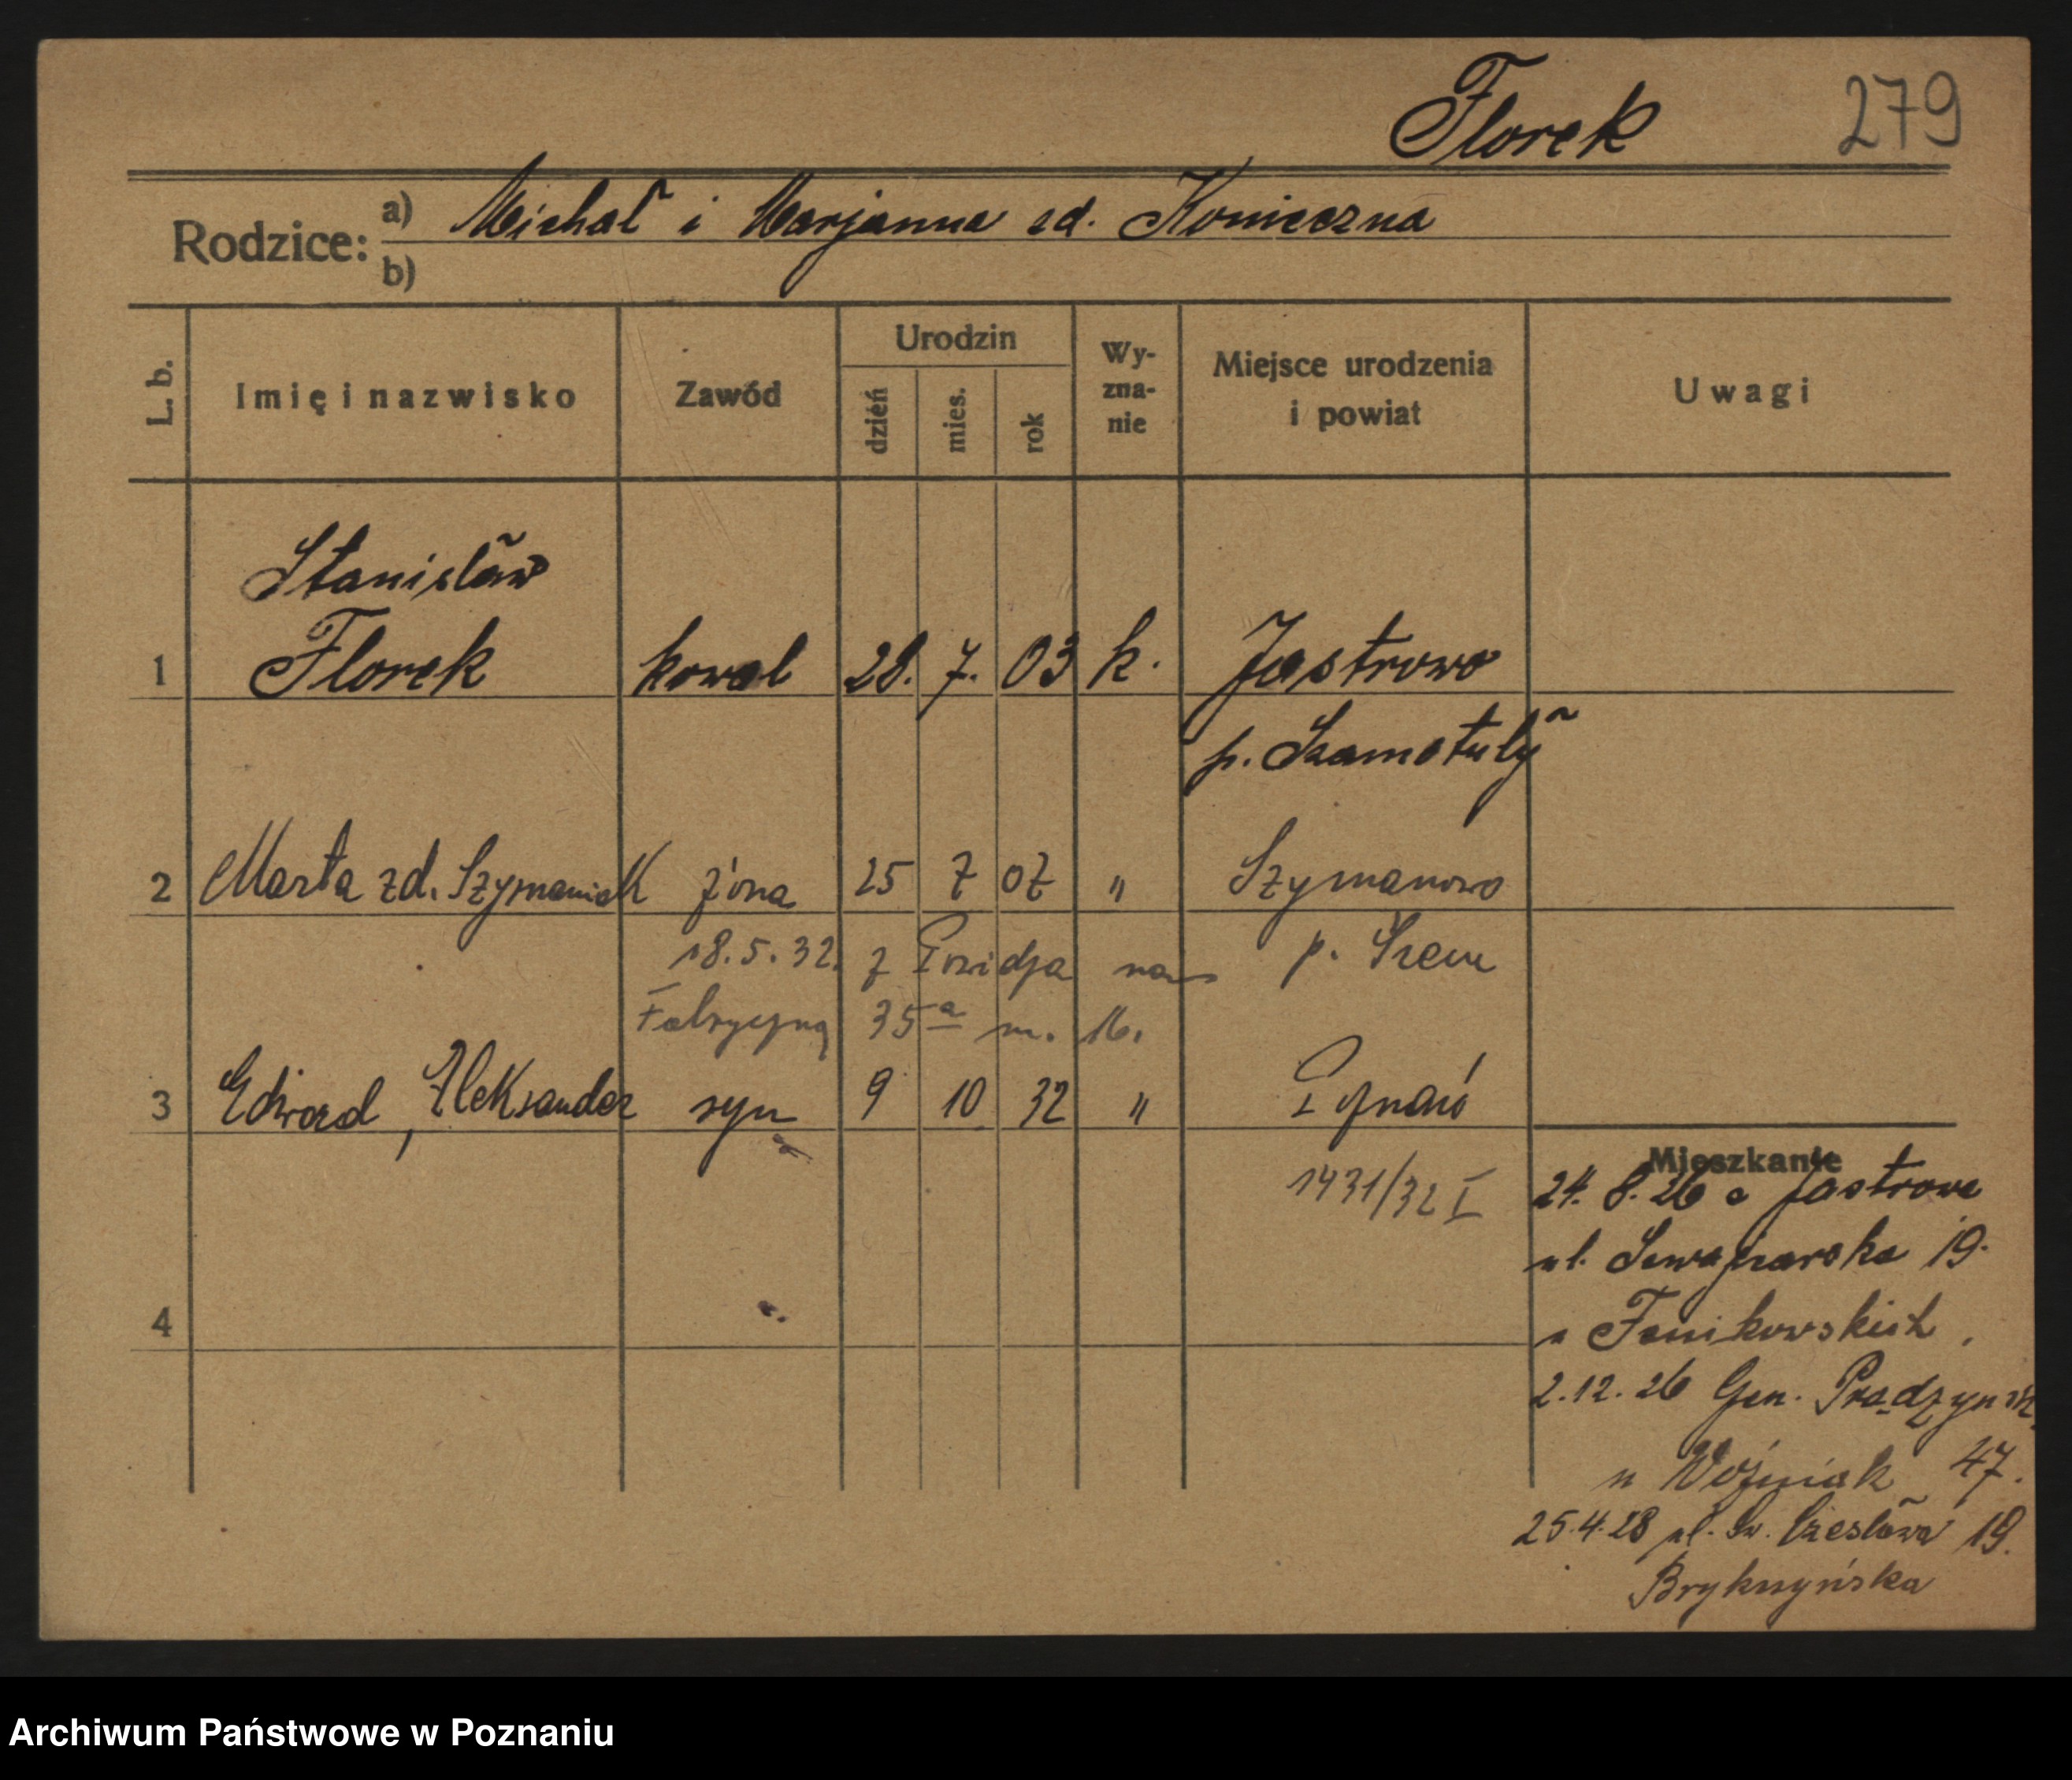 Florek 279
Rodzice: a) Michał i Marjanna zd. Konieczna
b)
L. b. Imię i nazwisko Zawód Urodzin dzień mies. rok Wy-zna-nie Miejsce urodzenia i powiat Uwagi
Stanisław
1 Florek kowal 28. 7. 03 k. Jastrowo
p. Szamotuły
2 Marta zd. Szymaniak żona 25 7 07 " Szymanowo
18.5.32. z na p. Śrem
Fabryczną 35a m. 16.
3 Edward, Aleksander syn 9 10 32 " Poznań
Mieszkanie
1431/32 I 24. 8. 26 z Jastrowa
ul. 19.
4 u Fenikowskich
2.12.26 Gen. Prądzyńsk.
u Woźniak 47.
25.4.28 ul. Św. Czesława 19.
Brykszyńska
Archiwum Państwowe w Poznaniu